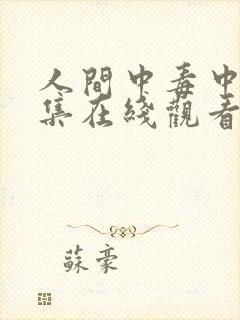 人間中毒中
集在綫觀看
蘇豪